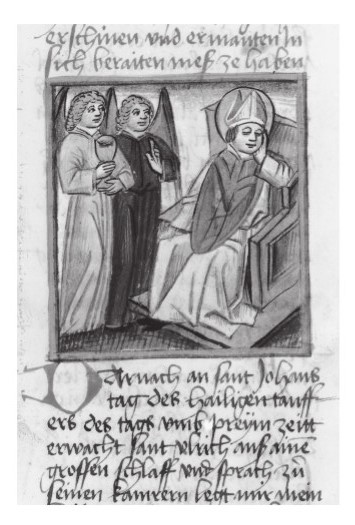 erschinen vnd ermanten in
sich beraiten meß ze haben
Darnach an sant Johans
tag des hailigen tauff
ers des tags vmb preym zeitt
erwacht sant vlrich auß aine
grossen schlaff vnd sprach zu
seinen kamrern legt mir mein